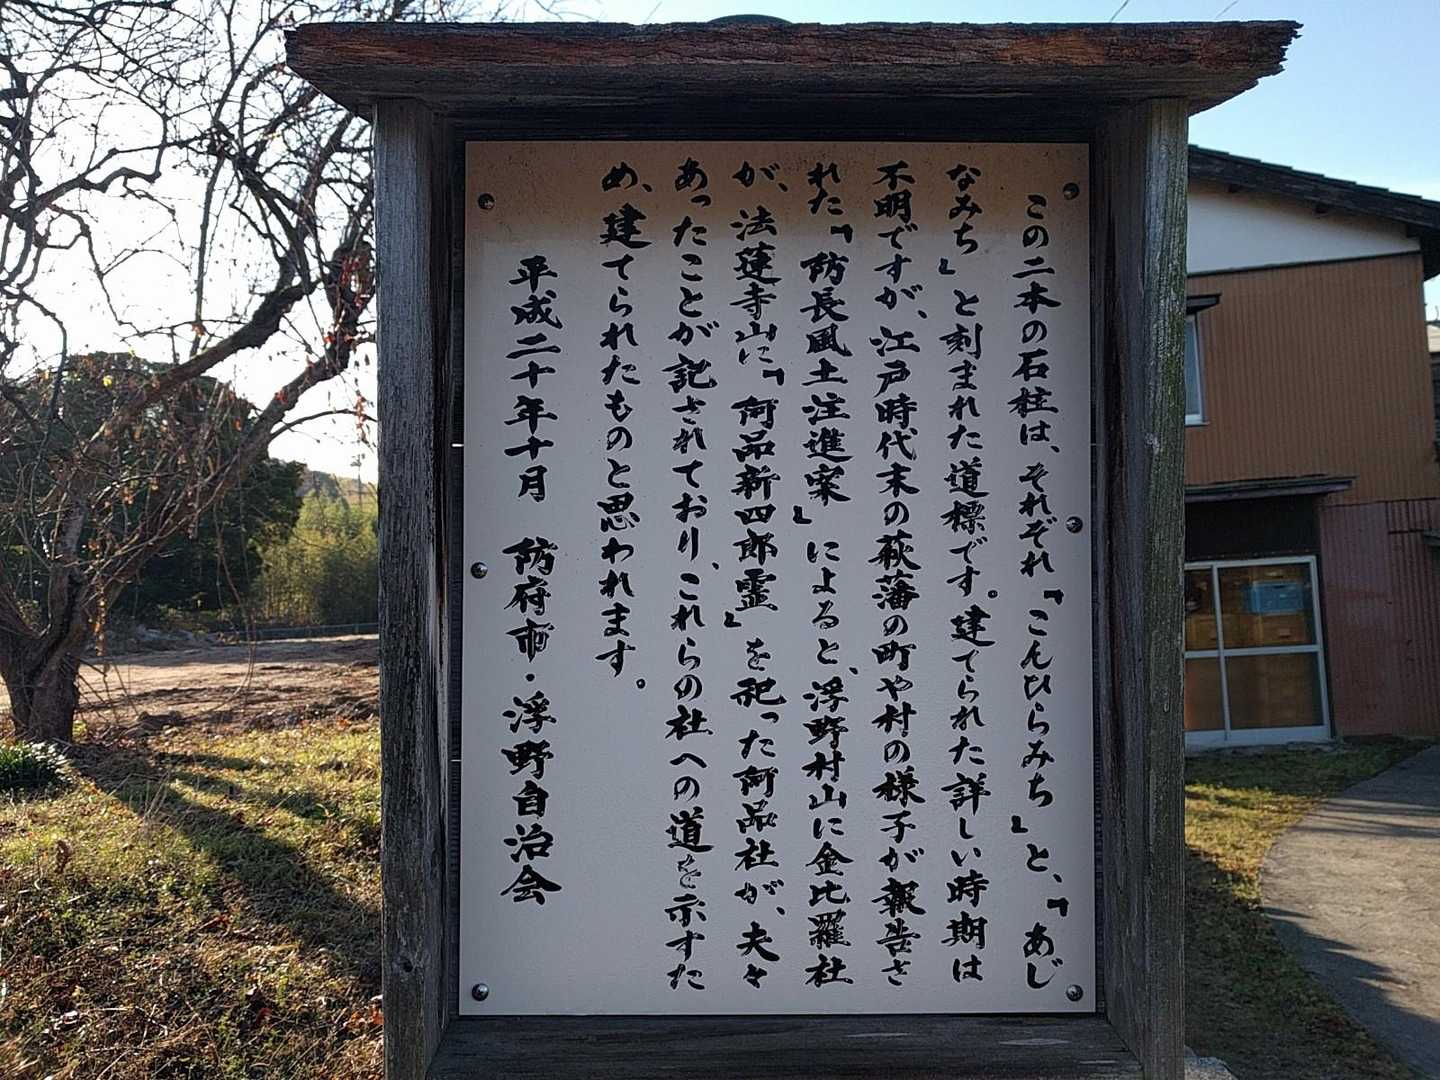 この二本の石柱は、それぞれ「こんひらみち」と、「あじ
なみち」と刻まれた道標です。建てられた詳しい時期は
不明ですが、江戸時代末の萩藩の町や村の様子が報告さ
れた「防長風土注進案」によると、浮野村山に金比羅社
が、法蓮寺山に「阿品新四郎霊」を祀った阿品社が、夫々
あったことが記されており、これらの社への道を示すた
め、建てられたものと思われます。
平成二十年十月 防府市・浮野自治会